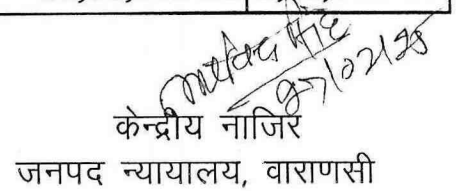 केन्द्रीय नाजिर
जनपद न्यायालय, वाराणसी